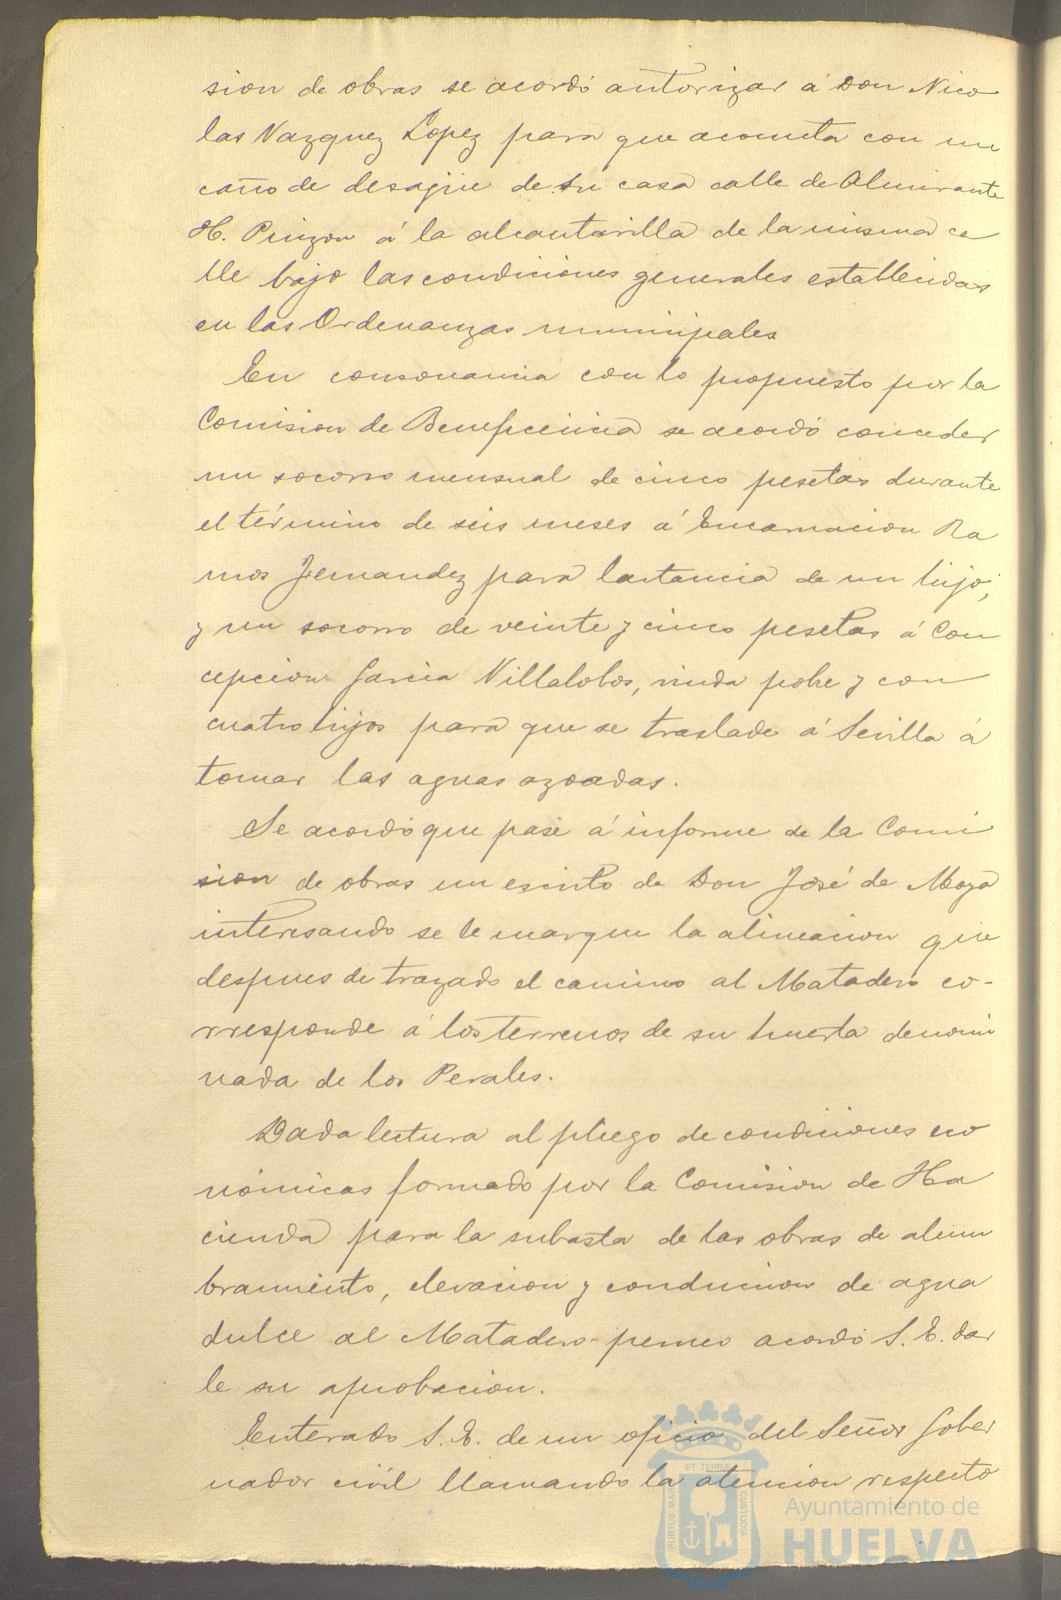 sion de obras se acordó autorizar á Don Nico
las Vazquez Lopez para que acometa con un
caño de desagüe de su casa calle de Almirante
H. Pinzon á la alcantarilla de la misma ca
lle bajo las condiciones generales establecidas
en las Ordenanzas municipales
En consonancia con lo propuesto por la
Comision de Beneficencia se acordó conceder
un socorro mensual de cinco pesetas durante
el término de seis meses á Encarnacion Ra
mos Fernandez para lactancia de un hijo;
y un socorro de veinte y cinco pesetas á Con
cepcion Garcia Villalobos, viuda pobre y con
cuatro hijos para que se traslade á Sevilla á
tomar las aguas azoadas.
Se acordó que pase á informe de la Comi
sion de obras un escrito de Don José de Moya
interesando se le marque la alineacion que
despues de trazado el camino al Matadero co-
rresponde á los terrenos de su huerta denomi
nada de los Perales.
Dada lectura al pliego de condiciones eco
nómicas formado por la Comision de Ha
cienda para la subasta de las obras de alum
bramiento, elevacion y conduccion de agua
dulce al Matadero público acordó S. E. dar
le su aprobacion.
Enterado S. E. de un oficio del Señor Gober
nador civil llamando la atencion respecto
ET TERRAE
PORTUS MARIS
CUSTODIA
Ayuntamiento de
HUELVA